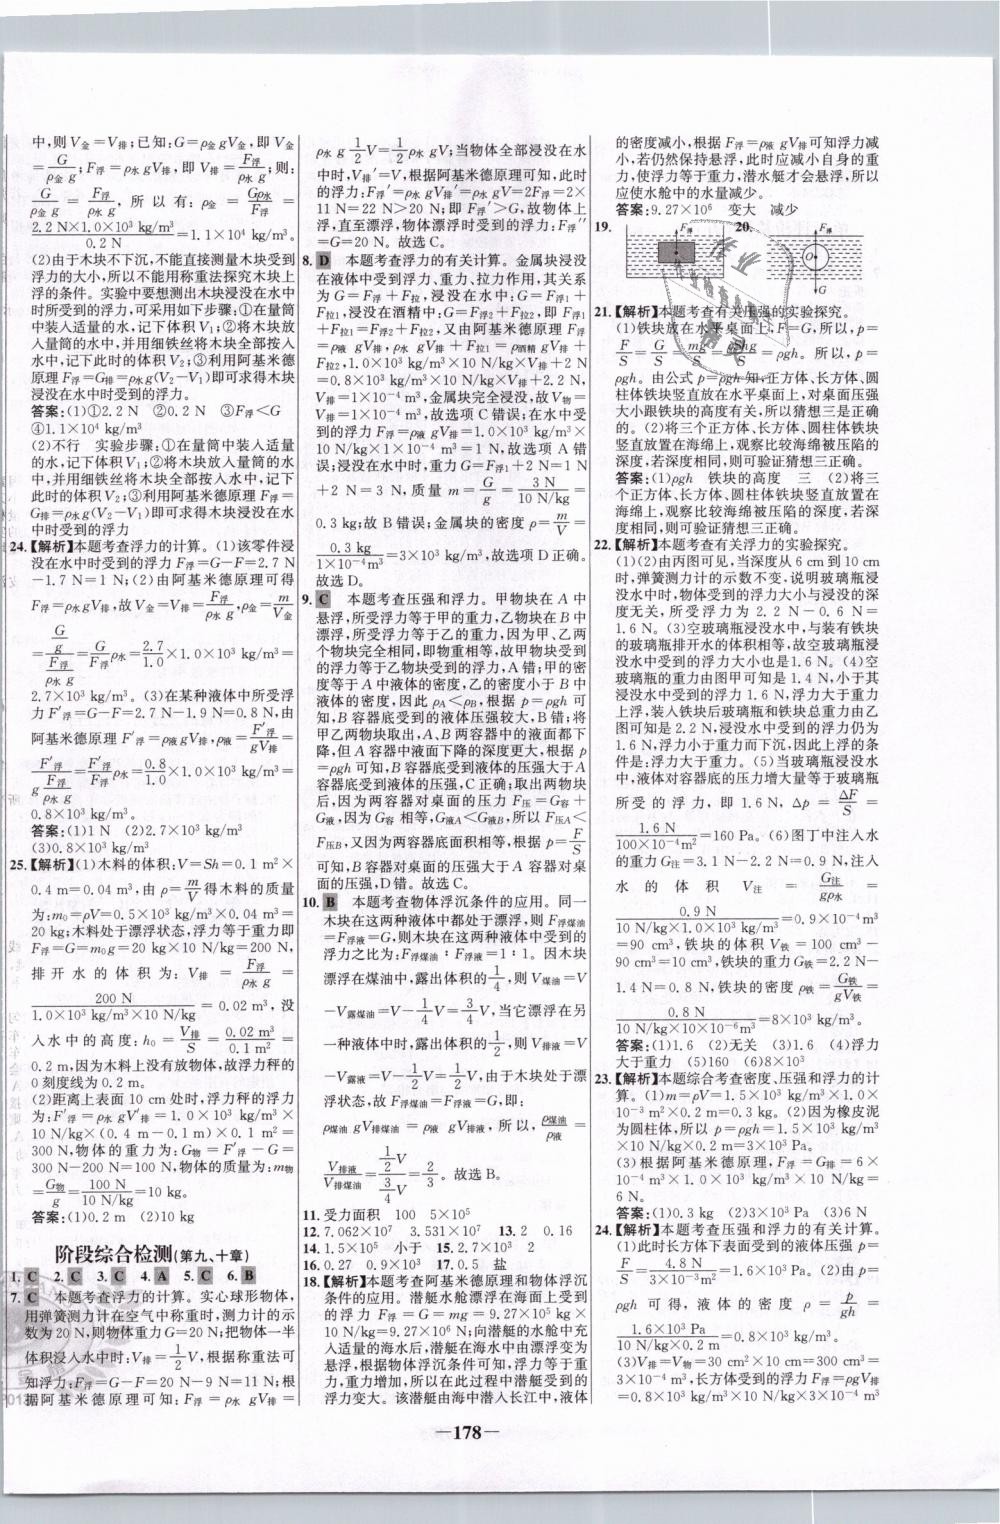 中,则V金=V排;已知:G=ρ金gV金,即V金
=G/ρ金g;F浮=ρ水gV排,即V排=F浮/ρ水g;则:
G/ρ金g=F浮/ρ水g,所以有:ρ金=Gρ水/F浮=
2.2 N×1.0×10³ kg/m³/0.2 N=1.1×10⁴ kg/m³。
(2)由于木块不下沉,不能直接测量木块受到
浮力的大小,所以不能用称重法探究木块上
浮的条件。实验中要想测出木块浸没在水中
时所受到的浮力,可采用如下步骤:①在量筒
中装入适量的水,记下体积V₁;②将木块放
入量筒的水中,并用细铁丝将木块全部按入
水中,记下此时的体积V₂;③利用阿基米德
原理F浮=G排=ρ水g(V₂-V₁)即可求得木块
浸没在水中时受到的浮力。
答案:(1)①2.2 N ②0.2 N ③F浮<G
④1.1×10⁴ kg/m³
(2)不行 实验步骤:①在量筒中装入适量
的水,记下体积V₁;②将木块放入量筒的水
中,并用细铁丝将木块全部按入水中,记下
此时的体积V₂;③利用阿基米德原理F浮=
G排=ρ水g(V₂-V₁)即可求得木块浸没在水
中时受到的浮力
24.【解析】本题考查浮力的计算。(1)该零件浸
没在水中时受到的浮力F浮=G-F=2.7 N
-1.7 N=1 N;(2)由阿基米德原理可得
F浮=ρ水gV排,故V金=V排=F浮/ρ水g,ρ金=m/V金
=(G/g)/(F浮/ρ水g)=G/F浮ρ水=2.7/1.0×1.0×10³ kg/m³=
2.7×10³ kg/m³。(3)在某种液体中所受浮
力F′浮=G-F=2.7 N-1.9 N=0.8 N,由
阿基米德原理F′浮=ρ液gV排,ρ液=F′浮/gV排=
F′浮/(g F浮/ρ水g)=F′浮/F浮ρ水=0.8/1.0×1.0×10³ kg/m³=
0.8×10³ kg/m³。
答案:(1)1 N (2)2.7×10³ kg/m³
(3)0.8×10³ kg/m³
25.【解析】(1)木料的体积:V=Sh=0.1 m²×
0.4 m=0.04 m³,由ρ=m/V得木料的质量
为:m₀=ρV=0.5×10³ kg/m³×0.04 m³=
20 kg;木料处于漂浮状态,浮力等于重力即
F浮=G=m₀g=20 kg×10 N/kg=200 N,
排开水的体积为:V排=F浮/ρ水g=
200 N/1.0×10³ kg/m³×10 N/kg=0.02 m³,没
入水中的高度:h₀=V排/S=0.02 m³/0.1 m²=
0.2 m,因为木料上没有放物体,故浮力秤的
0刻度线为0.2 m。
(2)距离上表面10 cm处时,浮力秤的浮力
为:F′浮=ρ水gV′排=1.0×10³ kg/m³×
10 N/kg×(0.4 m-0.1 m)×0.1 m²=
300 N,物体的重力为:G物=F′浮-G=
300 N-200 N=100 N,物体的质量为:m物
=G物/g=100 N/10 N/kg=10 kg。
答案:(1)0.2 m (2)10 kg
阶段综合检测(第九、十章)
1.C 2.C 3.C 4.A 5.C 6.B
7.C 本题考查浮力的计算。实心球形物体,
用弹簧测力计在空气中称重时,测力计的示
数为20 N,则物体重力G=20 N;把物体一半
体积浸入水中时:V排=1/2V,根据称重法可
知浮力:F浮=G-F=20 N-9 N=11 N;根
据阿基米德原理可知:F浮=ρ水gV排=
ρ水g1/2V=1/2ρ水gV;当物体全部浸没在水
中时,V排′=V,根据阿基米德原理可知,此时
的浮力:F浮′=ρ水gV排′=ρ水gV=2F浮=2×
11 N=22 N>20 N;即F浮′>G,故物体上
浮,直至漂浮,物体漂浮时受到的浮力:F浮″
=G=20 N。故选C。
8.D 本题考查浮力的有关计算。金属块浸没
在液体中受到浮力、重力、拉力作用,其关系
为G=F浮+F拉,浸没在水中:G=F浮1+
F拉1,浸没在酒精中:G=F浮2+F拉2,即F浮1
+F拉1=F浮2+F拉2,又由阿基米德原理F浮
=ρ液gV排,ρ水gV排+F拉1=ρ酒精gV排+
F拉2,1.0×10³ kg/m³×10 N/kg×V排+2 N
=0.8×10³ kg/m³×10 N/kg×V排+2.2 N,
V排=1×10⁻⁴ m³,金属块完全浸没,故V物=
V排=1×10⁻⁴ m³,故选项C错误;在水中受
到的浮力F浮=ρ液gV排=1.0×10³ kg/m³×
10 N/kg×1×10⁻⁴ m³=1 N,故选项A错
误;浸没在水中时,重力G=F浮1+2 N=1 N
+2 N=3 N,质量m=G/g=3 N/10 N/kg=
0.3 kg;故B错误;金属块的密度ρ=m/V=
0.3 kg/1×10⁻⁴ m³=3×10³ kg/m³,故选项D正确。
故选D。
9.C 本题考查压强和浮力。甲物块在A中
悬浮,所受浮力等于甲的重力,乙物块在B中
漂浮,所受浮力等于乙的重力,因为甲、乙两
个物块完全相同,即物重相等,故甲物块受到
的浮力等于乙物块受到的浮力,A错;甲的密
度等于A中液体的密度,乙的密度小于B中
液体的密度,因此ρA<ρB,根据p=ρgh可
知,B容器底受到的液体压强较大,B错;将
甲乙两物块取出,A、B容器中的液面都下
降,但A容器中液面下降的深度更大,根据p
=ρgh可知,B容器底受到液体的压强大于A
容器底受到液体的压强,C正确;取出两物块
后,因为两容器对桌面的压力F压=G容+
G液,因为G容相等,G液A<G液B,所以F压A<
F压B,又因为两容器底面积相等,根据p=F/S
可知,B容器对桌面的压强大于A容器对桌
面的压强,D错。故选C。
10.B 本题考查物体浮沉条件的应用。同一
木块在这两种液体中都处于漂浮,则F浮煤油
=F浮液=G,则木块在这两种液体中受到的
浮力之比为:F浮煤油∶F浮液=1∶1。因木块
漂浮在煤油中,露出体积的1/4,则V排煤油=V
-V露煤油=V-1/4V=3/4V,当它漂浮在另
一种液体中时,露出体积的1/2,则V排液=V
-V露液=V-1/2V=1/2V,由于木块处于漂
浮状态,故F浮煤油=F浮液=G,即:
ρ煤油gV排煤油=ρ液gV排液,所以,ρ煤油/ρ液=
V排液/V排煤油=(1/2V)/(3/4V)=2/3。故选B。
11.受力面积 100 5×10⁵
12.7.062×10⁷ 3.531×10⁷ 13.2 0.16
14.1.5×10⁵ 小于 15.2.7×10³ 2
16.0.27 0.9×10³ 17.0.5 盐
18.【解析】本题考查阿基米德原理和物体浮沉
条件的应用。潜艇水舱漂浮在海面上受到
的浮力F浮=G=mg=9.27×10⁵ kg×
10 N/kg=9.27×10⁶ N;向潜艇的水舱中充
入适量的海水后,潜艇在海水中由漂浮变为
悬浮,根据物体浮沉条件可知,浮力等于重
力,重力增加,所以在此过程中潜艇受到的
浮力变大。该潜艇由海中潜入长江中,液体
的密度减小,根据F浮=ρ液gV排可知浮力减
小,若仍然保持悬浮,此时应减小自身的重
力,使浮力等于重力,潜水艇才会悬浮,所以
应使水舱中的水量减少。
答案:9.27×10⁶ 变大 减少
19. F浮 20. F浮 O G
21.【解析】本题考查有关压强的实验探究。
(1)铁块放在水平桌面上,F=G,所以,p=
F/S=G/S=mg/S=ρShg/S=ρgh。所以,p=
ρgh。由公式p=ρgh知,正方体、长方体、圆
柱体铁块竖直放在水平桌面上,对桌面压强
大小跟铁块的高度有关,所以猜想三是正确
的。(2)将三个正方体、长方体、圆柱体铁块
竖直放置在海绵上,观察比较海绵被压陷的
深度,若深度相同,则可验证猜想三正确。
答案:(1)ρgh 铁块的高度 三 (2)将三
个正方体、长方体、圆柱体铁块竖直放置在
海绵上,观察比较海绵被压陷的深度,若深度
相同,则可验证猜想三正确。
22.【解析】本题考查有关浮力的实验探究。
(1)(2)由丙图可见,当深度从6 cm到10 cm
时,弹簧测力计的示数不变,说明玻璃瓶浸
没水中时,物体受到的浮力大小与浸没的深
度无关,所受浮力为2.2 N-0.6 N=
1.6 N。(3)空玻璃瓶浸没水中,与装有铁块
的玻璃瓶排开水的体积相等,故空玻璃瓶浸
没水中受到的浮力大小也是1.6 N。(4)空
玻璃瓶的重力由图甲可知是1.4 N,小于其
浸没水中受到的浮力1.6 N,浮力大于重力
上浮,装入铁块后玻璃瓶和铁块总重力由乙
图可知是2.2 N,浸没水中受到的浮力仍为
1.6 N,浮力小于重力而下沉,因此上浮的条
件是:浮力大于重力。(5)当玻璃瓶浸没水
中,液体对容器底的压力增大量等于玻璃瓶
所受的浮力,即1.6 N,Δp=ΔF/S=
1.6 N/100×10⁻⁴m²=160 Pa。(6)图丁中注入水
的重力G注=3.1 N-2.2 N=0.9 N,注入
水的体积V注=G注/gρ水=
0.9 N/10 N/kg×1.0×10³ kg/m³=0.9×10⁻⁴m³
=90 cm³,铁块的体积V铁=100 cm³-
90 cm³=10 cm³,铁块的重力G铁=2.2 N-
1.4 N=0.8 N,铁块的密度ρ铁=G铁/gV铁=
0.8 N/10 N/kg×10×10⁻⁶m³=8×10³ kg/m³。
答案:(1)1.6 (2)无关 (3)1.6 (4)浮力
大于重力 (5)160 (6)8×10³
23.【解析】本题综合考查密度、压强和浮力的计
算。(1)m=ρV=1.5×10³ kg/m³×1.0×
10⁻³ m²×0.2 m=0.3 kg。(2)因为橡皮泥
为圆柱体,所以p=ρgh=1.5×10³ kg/m³
×10 N/kg×0.2 m=3×10³ Pa。
(3)根据阿基米德原理,F浮=G排=6×
10⁻⁴ m³×1.0×10³ kg/m³×10 N/kg=
6 N。
答案:(1)0.3 kg (2)3×10³ Pa (3)6 N
24.【解析】本题考查压强和浮力的有关计算。
(1)此时长方体下表面受到液体的压强p=
F/S=4.8 N/3×10⁻³m²=1.6×10³ Pa。(2)由p=
ρgh可得,液体的密度ρ=p/gh=
1.6×10³ Pa/10 N/kg×0.2 m=0.8×10³ kg/m³。
(3)V排=V物=30 cm²×10 cm=300 cm³=
3×10⁻⁴ m³,长方体受到的浮力F浮=ρgV排
=0.8×10³ kg/m³×10 N/kg×3×10⁻⁴ m³
—178—